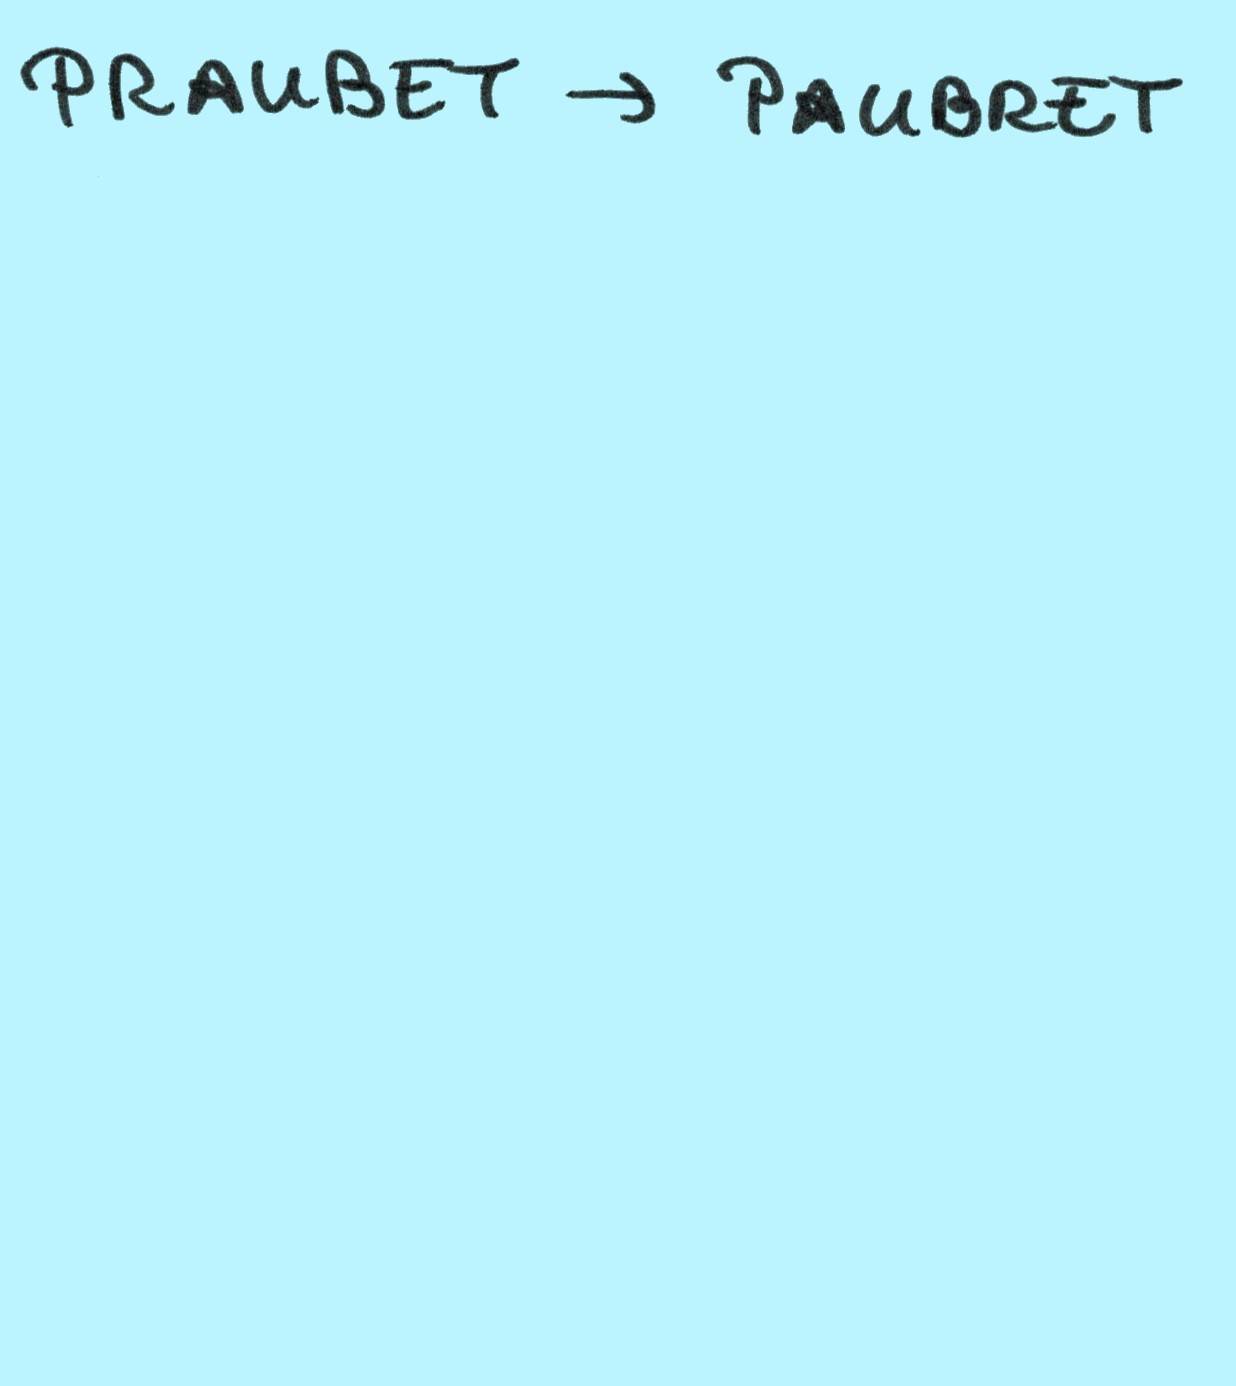 PRAUBET → PAUBRET